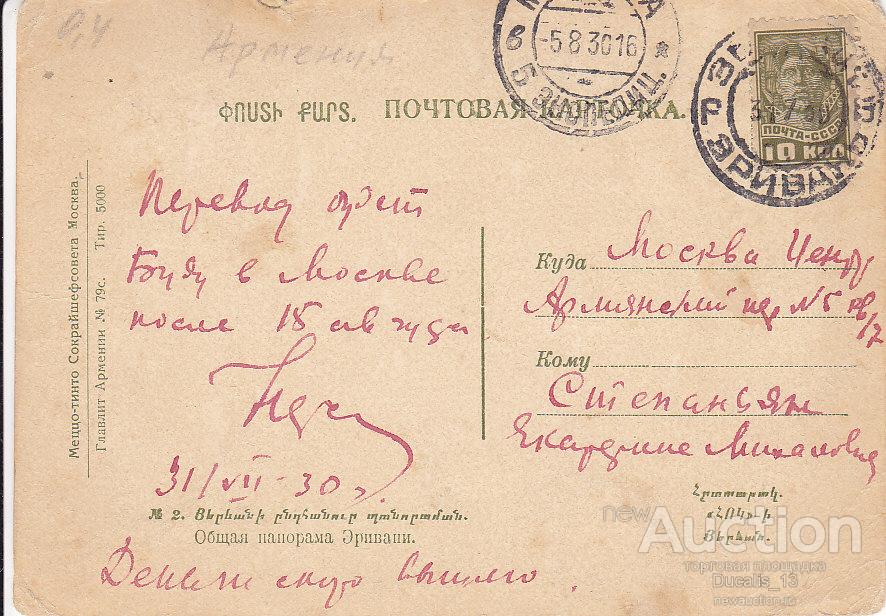 0,4
Армения
ՓՈՍՏԻ ՔԱՐՏ. ПОЧТОВАЯ КАРТОЧКА.
-5 8 30 16
ПОЧТА-СССР
10 КОП
ЭРИВАН
Меццо-тинто Сокрайшефсовета Москва.
Главлит Армении № 79с. Тир. 5000
Перевод
Буду в Москве
после 18 августа
31/VII-30 г.
Куда Москва Центр
Армянский пер N 5 кв/7
Кому
Степаньян
Екатерине Михайловне
№ 2. Յերևանի ընդհանուր պանորաման.
Общая панорама Эривани.
Деньги скоро вышлю.
Հրատարակ.
«ՀՈԿ»ի
Յերևան.
newAuction
торговая площадка
Ducalis_13
newauction.ru